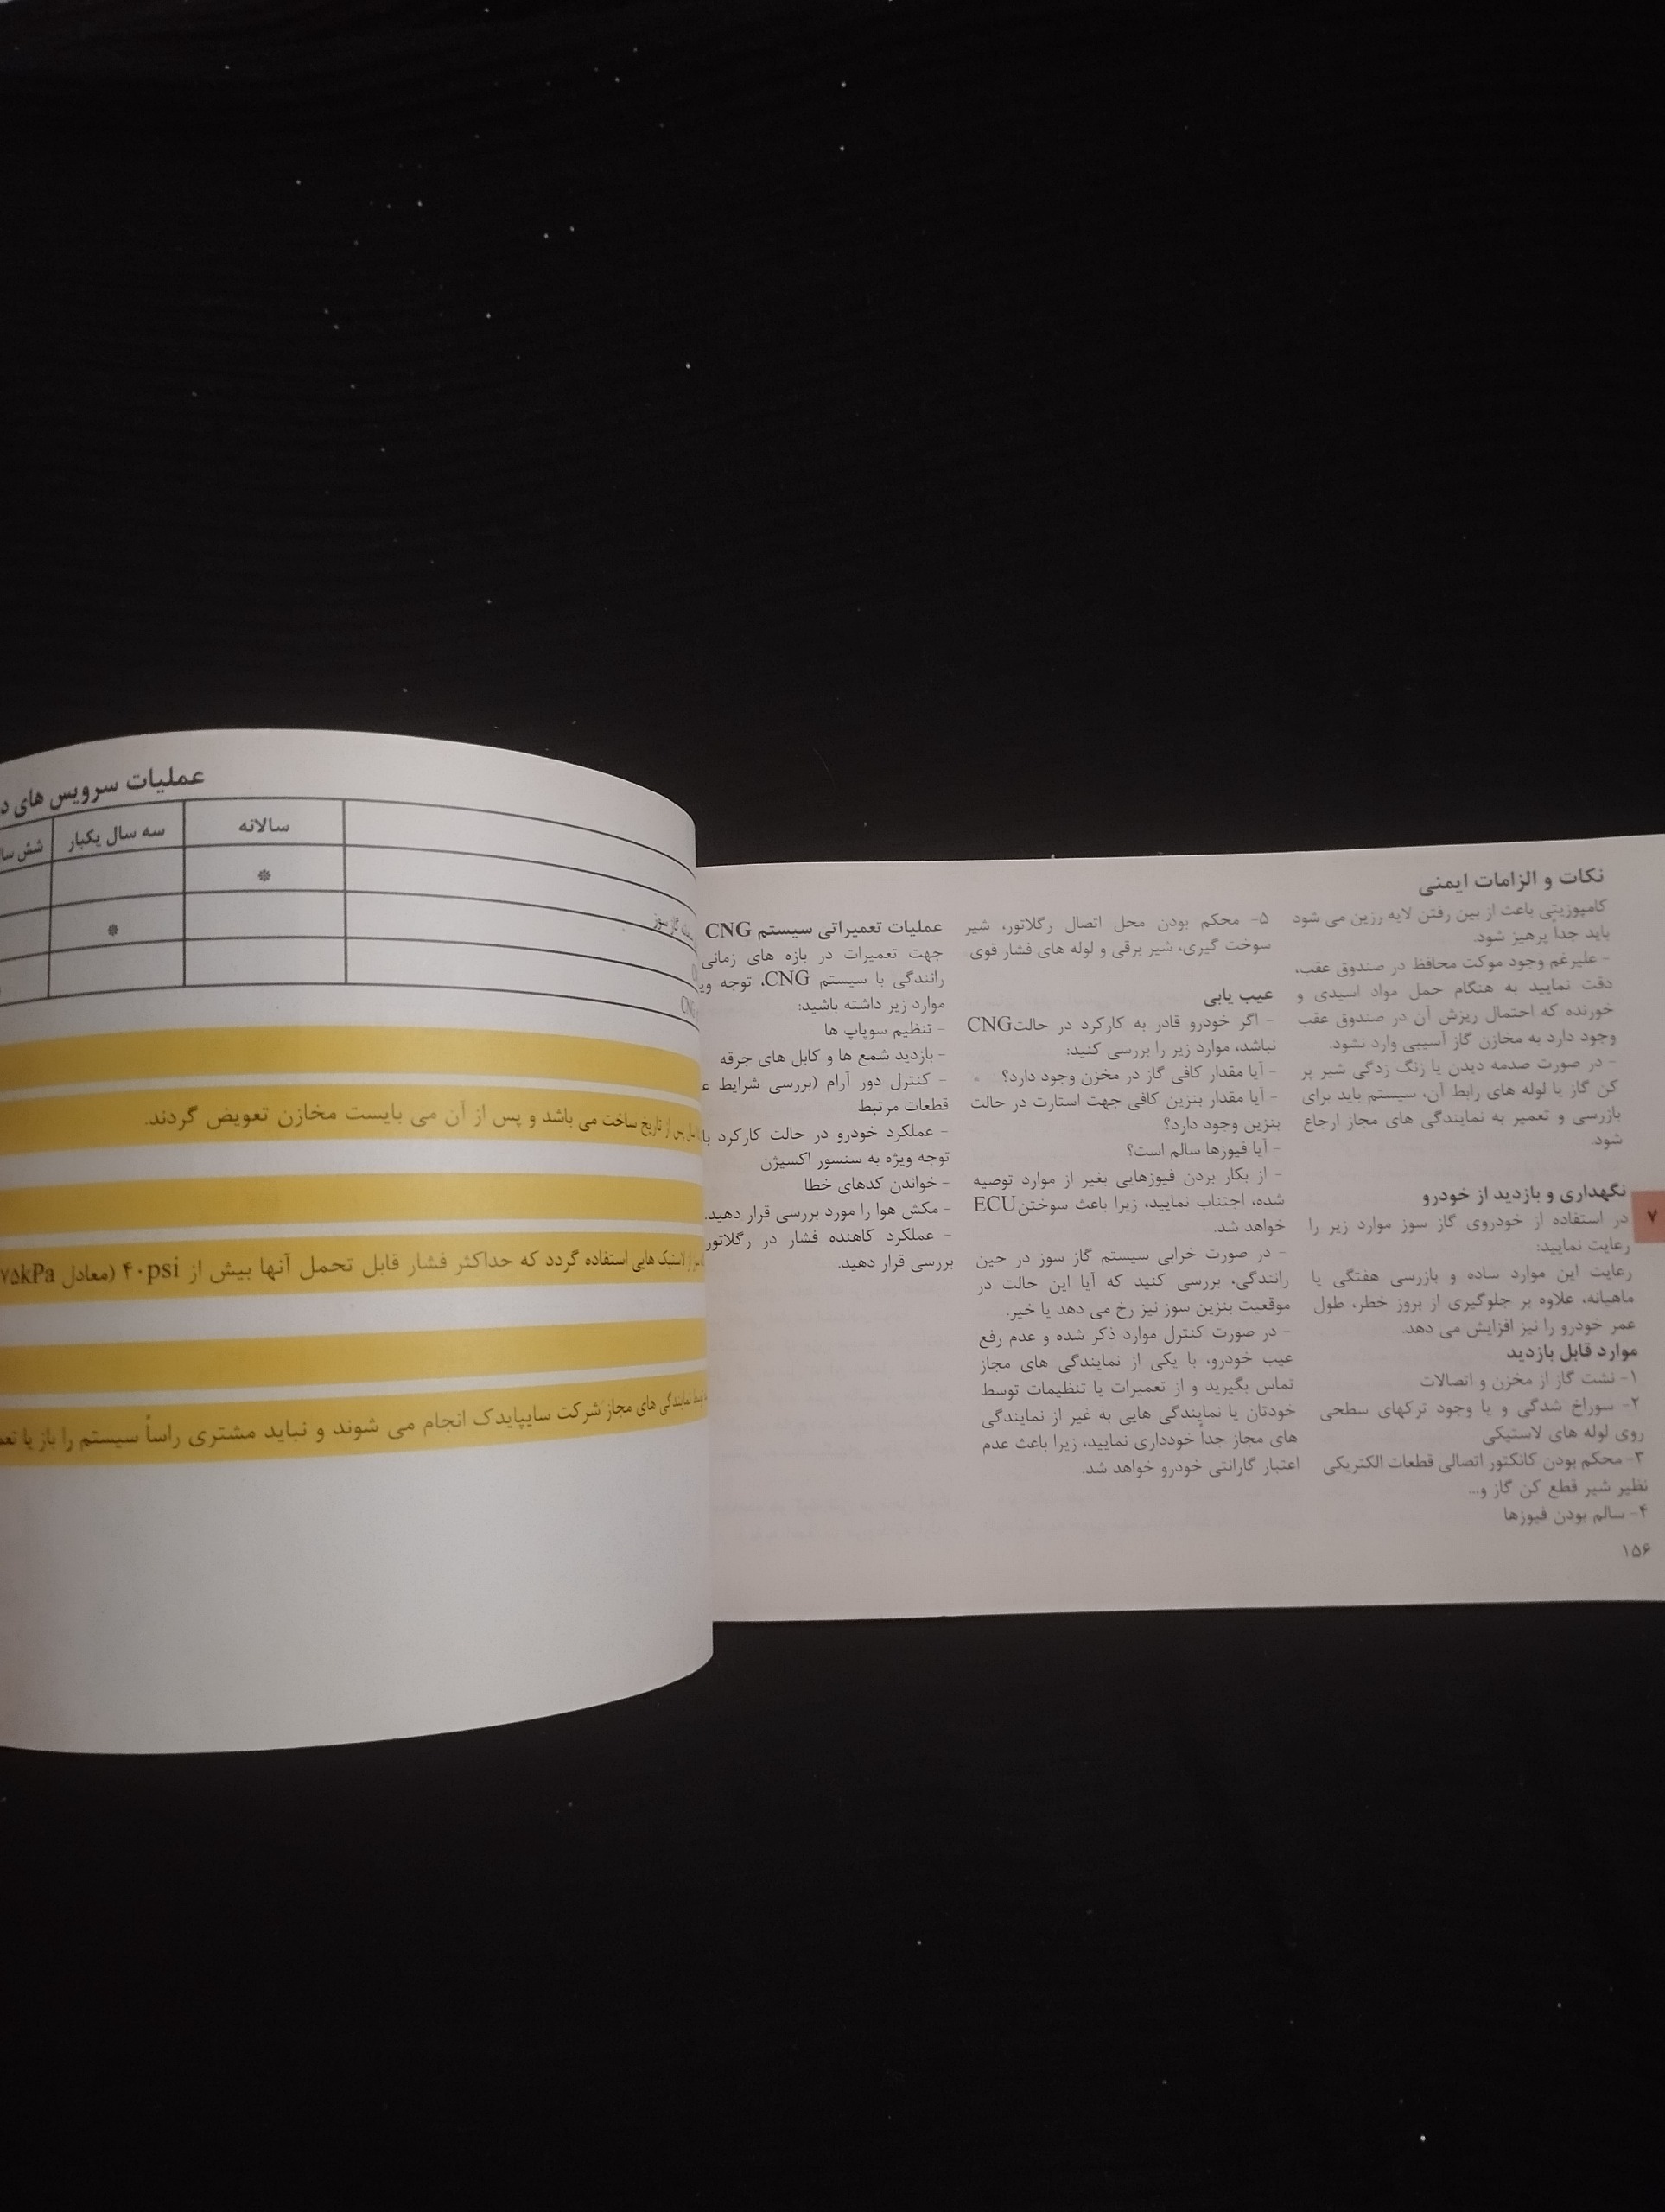 نکات و الزامات ایمنی
کامپوزیتی باعث از بین رفتن لایه رزین می شود
باید جداً پرهیز شود.
- علیرغم وجود موکت محافظ در صندوق عقب،
دقت نمایید به هنگام حمل مواد اسیدی و
خورنده که احتمال ریزش آن در صندوق عقب
وجود دارد به مخازن گاز آسیبی وارد نشود.
- در صورت صدمه دیدن یا زنگ زدگی شیر پر
کن گاز یا لوله های رابط آن، سیستم باید برای
بازرسی و تعمیر به نمایندگی های مجاز ارجاع
شود.
نگهداری و بازدید از خودرو
در استفاده از خودروی گاز سوز موارد زیر را
رعایت نمایید:
رعایت این موارد ساده و بازرسی هفتگی یا
ماهیانه، علاوه بر جلوگیری از بروز خطر، طول
عمر خودرو را نیز افزایش می دهد.
موارد قابل بازدید
۱- نشت گاز از مخزن و اتصالات
۲- سوراخ شدگی و یا وجود ترکهای سطحی
روی لوله های لاستیکی
۳- محکم بودن کانکتور اتصالی قطعات الکتریکی
نظیر شیر قطع کن گاز و...
۴- سالم بودن فیوزها
۷
۱۵۶
۵- محکم بودن محل اتصال رگلاتور، شیر
سوخت گیری، شیر برقی و لوله های فشار قوی
عیب یابی
- اگر خودرو قادر به کارکرد در حالت CNG
نباشد، موارد زیر را بررسی کنید:
- آیا مقدار کافی گاز در مخزن وجود دارد؟
- آیا مقدار بنزین کافی جهت استارت در حالت
بنزین وجود دارد؟
- آیا فیوزها سالم است؟
- از بکار بردن فیوزهایی بغیر از موارد توصیه
شده، اجتناب نمایید، زیرا باعث سوختن ECU
خواهد شد.
- در صورت خرابی سیستم گاز سوز در حین
رانندگی، بررسی کنید که آیا این حالت در
موقعیت بنزین سوز نیز رخ می دهد یا خیر.
- در صورت کنترل موارد ذکر شده و عدم رفع
عیب خودرو، با یکی از نمایندگی های مجاز
تماس بگیرید و از تعمیرات یا تنظیمات توسط
خودتان یا نمایندگی هایی به غیر از نمایندگی
های مجاز جداً خودداری نمایید، زیرا باعث عدم
اعتبار گارانتی خودرو خواهد شد.
عملیات تعمیراتی سیستم CNG
جهت تعمیرات در بازه های زمانی
رانندگی با سیستم CNG، توجه
موارد زیر داشته باشید:
- تنظیم سوپاپ ها
- بازدید شمع ها و کابل های جرقه
- کنترل دور آرام (بررسی شرایط
قطعات مرتبط
- عملکرد خودرو در حالت کارکرد با
توجه ویژه به سنسور اکسیژن
- خواندن کدهای خطا
- مکش هوا را مورد بررسی قرار دهید.
- عملکرد کاهنده فشار در رگلاتور
بررسی قرار دهید.
عملیات سرویس های
سالانه
سه سال یکبار
شش
گاز سوز
CNG
پس از تاریخ ساخت می باشد و پس از آن می بایست مخازن تعویض گردند.
از لاستیک هایی استفاده گردد که حداکثر فشار قابل تحمل آنها بیش از ۴۰psi (معادل ۷۵kPa
نمایندگی های مجاز شرکت سایپایدک انجام می شوند و نباید مشتری راساً سیستم را باز یا